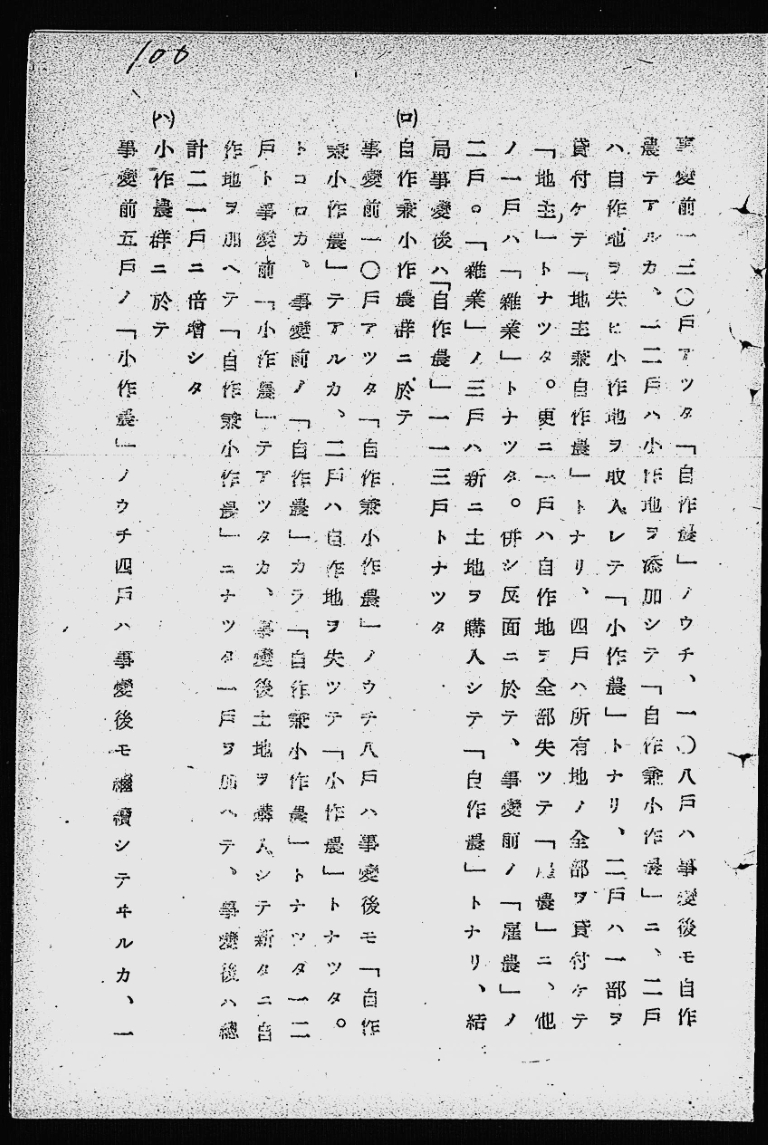 100
事變前一三〇戶アツタ「自作農」ノウチ、一〇八戶ハ事變後モ自作
農テアルカ、一二戶ハ小作地ヲ添加シテ「自作兼小作農」ニ、二戶
ハ自作地ヲ失ヒ小作地ヲ取入レテ「小作農」トナリ、二戶ハ一部ヲ
貸付ケテ「地主兼自作農」トナリ、四戶ハ所有地ノ全部ヲ貸付ケテ
「地主」トナツタ。更ニ一戶ハ自作地ヲ全部失ツテ「雇農」ニ、他
ノ一戶ハ「雜業」トナツタ。併シ反面ニ於テ、事變前ノ「雇農」ノ
二戶。「雜業」ノ三戶ハ新ニ土地ヲ購入シテ「自作農」トナリ、結
局事變後ハ「自作農」一一三戶トナツタ
(ロ)自作兼小作農群ニ於テ
事變前一〇戶アツタ「自作兼小作農」ノウチ八戶ハ事變後モ「自作
兼小作農」テアルカ、二戶ハ自作地ヲ失ツテ「小作農」トナツタ。
トコロカ、事變前ノ「自作農」カラ「自作兼小作農」トナツタ一二
戶ト事變前「小作農」テアツタカ、事變後土地ヲ購入シテ新タニ自
作地ヲ加ヘテ「自作兼小作農」ニナツタ一戶ヲ加ヘテ、事變後ハ總
計二一戶ニ倍增シタ
(ハ)小作農群ニ於テ
事變前五戶ノ「小作農」ノウチ四戶ハ事變後モ繼續シテヰルカ、一